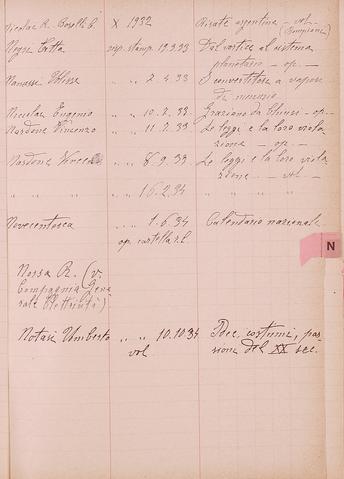 Nicolai R. - Boselli C. X 1932 Pirate argentine - vol. -
(Campione)
Negri Catta risp. stamp. 19.9.33 Dal vortice al sistema
planetario - op. -
Nanessi Ulisse " " 2.4.33 I convertitori a vapore
di mercurio
Nicolai Eugenio " " 10.2.33 Graziano da Chiusi - op -
Nardone Vincenzo " " 11.2.33 Le leggi e la loro viola
zione - op. -
Nardone " " 8.9.33 Le leggi e la loro viola
zione - vol. -
" " 16.2.34 " " " "
Novecentesca " 1.6.34 Calendario nazionale
op. cartella s.l.
N
Nossa R. (v.
Compagnia Gene
rale Elettricità)
Notari Umberto " " 10.10.34 Idee, costumi, pas
vol. sione del XX sec.